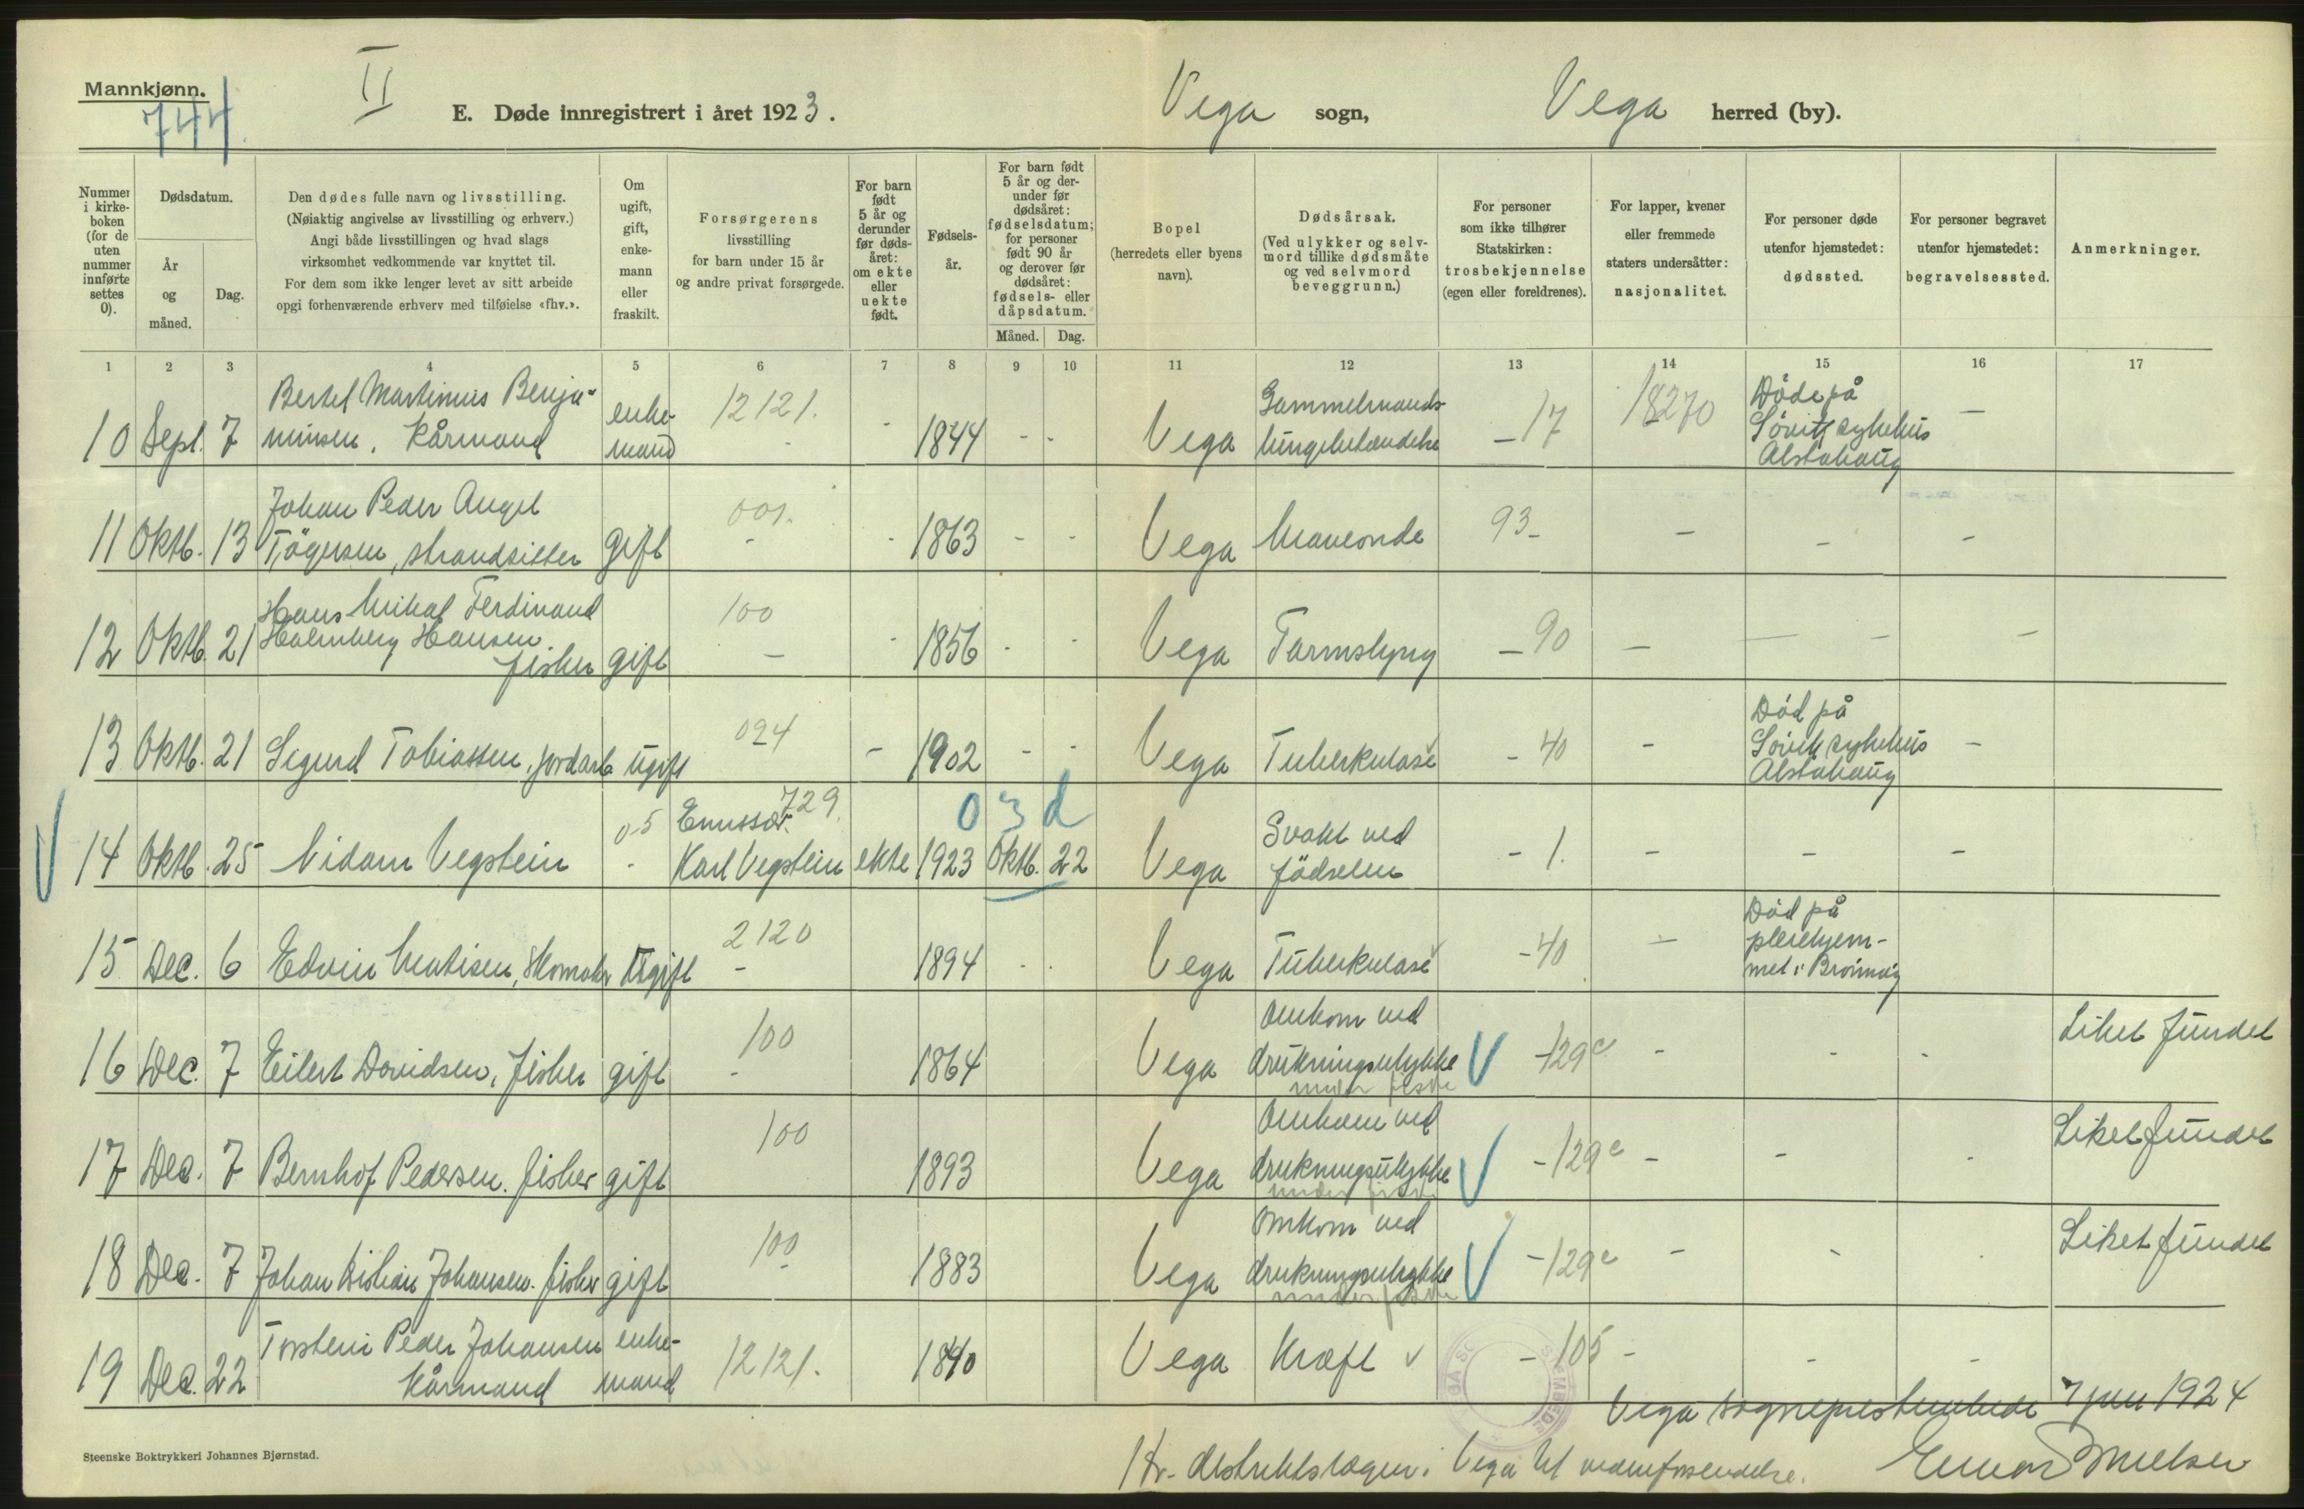 Mannkjønn.
744
II
E. Døde innregistrert i året 1923.
Vega sogn,
Vega herred (by).
Nummer i kirke-boken (for de uten nummer innførte settes 0).
Dødsdatum.
År og måned.
Dag.
Den dødes fulle navn og livsstilling.
(Nøiaktig angivelse av livsstilling og erhverv.)
Angi både livsstillingen og hvad slags
virksomhet vedkommende var knyttet til.
For dem som ikke lenger levet av sitt arbeide
opgi forhenværende erhverv med tilføielse «fhv.».
Om ugift, gift, enke-mann eller fraskilt.
Forsørgerens
livsstilling
for barn under 15 år
og andre privat forsørgede.
For barn født 5 år og derunder før døds-året: om ekte eller uekte født.
Fødsels-år.
For barn født 5 år og der-under før dødsåret: fødselsdatum; for personer født 90 år og derover før dødsåret: fødsels- eller dåpsdatum.
Måned. Dag.
Bopel
(herredets eller byens navn).
Dødsårsak.
(Ved ulykker og selv-mord tillike dødsmåte og ved selvmord beveggrunn.)
For personer
som ikke tilhører
Statskirken:
trosbekjennelse
(egen eller foreldrenes).
For lapper, kvener
eller fremmede
staters undersåtter:
nasjonalitet.
For personer døde
utenfor hjemstedet:
dødssted.
For personer begravet
utenfor hjemstedet:
begravelsessted.
Anmerkninger.
1 2 3 4 5 6 7 8 9 10 11 12 13 14 15 16 17
10 Sept. 7 Bertel Martinius Benja-minsen, Kårmand enke-mand 12121. - - 1844 - - Vega Gammelmands-lungebetændelse - 17 18270 Døde på Søvik sykehus Alstahaug -
11 Oktb. 13 Johan Peder Angel Tøgersen, strandsitter gift 001. - - 1863 - - Vega Maveonde 93 - - - -
12 Oktb. 21 Hans Mikal Ferdinand Holmberg Hansen. fisker gift 100 - - 1856 - - Vega Tarmslyng - 90 - - - -
13 Oktb. 21 Sigurd Tobiassen, jordarb ugift 024 - 1902 - - Vega Tuberkulose - 40 - Død på Søvik sykehus Alstahaug -
V 14 Oktb. 25 Vidam Vegstein 0-5 - 729. Karl Vegstein ekte 1923 03d Oktb. 22 Vega Svakt ved fødselen - 1. - - -
15 Dec. 6 Edvin Matisen, Skomaker Ugift 2120 - 1894 - - Vega Tuberkulose - 40 - Død på pleiehjem-met i Brønnøy
16 Dec. 7 Eilert Davidsen, fisker gift 100 - 1864 Vega Omkom ved drukningsulykke under fiske V - 129c - - - Liket fundet
17 Dec. 7 Bernhof Pedersen. fisker gift 100 1893 Vega Omkom ved drukningsulykke under fiske V - 129c - - - Liket fundet
18 Dec. 7 Johan Kristian Johansen. fisker gift 100 - 1883 Vega Omkom ved drukningsulykke under fiske V - 129c - - - Liket fundet
19 Dec. 22 Torstein Peder Johansen Kårmand enke-mand 12121. 1840 Vega Kræft v - 105 - - -
Vega sogneprestembede 7 jan 1924
Hr. distriktslægen i Vega til videreforsendelse.
Steenske Boktrykkeri Johannes Bjørnstad.